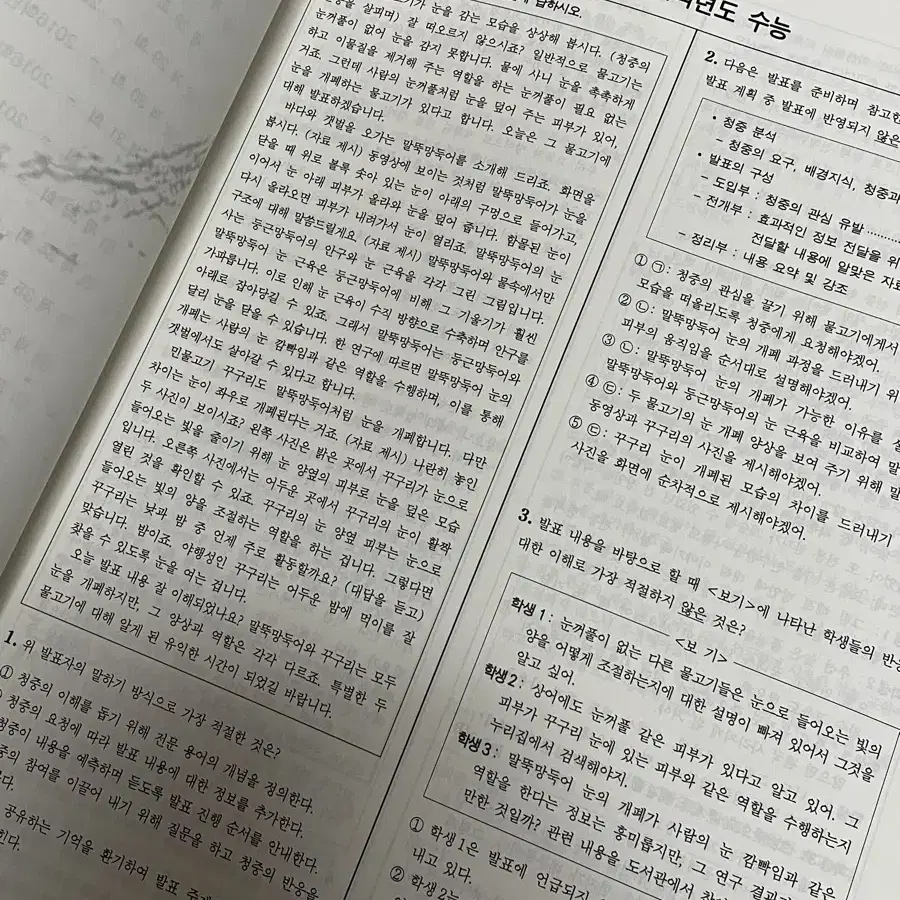 답하시오.
수능
눈을 감는 모습을 상상해 봅시다. (청중의
살피며) 잘 떠오르지 않으시죠? 일반적으로 물고기는
눈꺼풀이 없어 눈을 감지 못합니다. 물에 사니 눈을 촉촉하게
하고 이물질을 제거해 주는 역할을 하는 눈꺼풀이 필요 없는
거죠. 그런데 사람의 눈꺼풀처럼 눈을 덮어 주는 피부가 있어,
눈을 개폐하는 물고기가 있다고 합니다. 오늘은 그 물고기에
대해 발표하겠습니다.
바다와 갯벌을 오가는 말뚝망둑어를 소개해 드리죠. 화면을
봅시다. (자료 제시) 동영상에 보이는 것처럼 말뚝망둑어가 눈을
닫을 때 위로 볼록 솟아 있는 눈이 아래의 구멍으로 들어가고,
이어서 눈 아래 피부가 올라와 눈을 덮어 줍니다. 함몰된 눈이
다시 올라오면 피부가 내려가서 눈이 열리죠. 말뚝망둑어의 눈
구조에 대해 말씀드릴게요. (자료 제시) 말뚝망둑어와 물속에서만
사는 둥근망둑어의 안구와 눈 근육을 각각 그린 그림입니다.
말뚝망둑어 눈 근육은 둥근망둑어에 비해 그 기울기가 훨씬
가파릅니다. 이로 인해 눈 근육이 수직 방향으로 수축하며 안구를
아래로 잡아당길 수 있죠. 그래서 말뚝망둑어는 둥근망둑어와
달리 눈을 닫을 수 있습니다. 한 연구에 따르면 말뚝망둑어 눈의
개폐는 사람의 눈 깜빡임과 같은 역할을 수행하며, 이를 통해
갯벌에서도 살아갈 수 있다고 합니다.
민물고기 꾸구리도 말뚝망둑어처럼 눈을 개폐합니다. 다만
차이는 눈이 좌우로 개폐된다는 거죠. (자료 제시) 나란히 놓인
두 사진이 보이시죠? 왼쪽 사진은 밝은 곳에서 꾸구리가 눈으로
들어오는 빛을 줄이기 위해 눈 양옆의 피부로 눈을 덮은 모습
입니다. 오른쪽 사진에서는 어두운 곳에서 꾸구리의 눈이 활짝
열린 것을 확인할 수 있죠. 꾸구리의 눈 양옆 피부는 눈으로
들어오는 빛의 양을 조절하는 역할을 하는 겁니다. 그렇다면
꾸구리는 낮과 밤 중 언제 주로 활동할까요? (대답을 듣고)
맞습니다. 밤이죠. 야행성인 꾸구리는 어두운 밤에 먹이를 잘
찾을 수 있도록 눈을 여는 겁니다.
오늘 발표 내용 잘 이해되었나요? 말뚝망둑어와 꾸구리는 모두
눈을 개폐하지만, 그 양상과 역할은 각각 다르죠. 특별한 두
물고기에 대해 알게 된 유익한 시간이 되었길 바랍니다.
1. 위 발표자의 말하기 방식으로 가장 적절한 것은?
① 청중의 이해를 돕기 위해 전문 용어의 개념을 정의한다.
청중의 요청에 따라 발표 내용에 대한 정보를 추가한다.
청중이 내용을 예측하며 듣도록 발표 진행 순서를 안내한다.
참여를 이끌어 내기 위해 질문을 하고 청중의 반응을
공유하는 기억을 환기하여 발표
2. 다음은 발표를 준비하며 참고한
발표 계획 중 발표에 반영되지 않은
• 청중 분석
- 청중의 요구, 배경지식, 청중과
• 발표의 구성
- 도입부 : 청중의 관심 유발
- 전개부 : 효과적인 정보 전달을 위
전달할 내용에 알맞은 자료
- 정리부 : 내용 요약 및 강조
① ㉠: 청중의 관심을 끌기 위해 물고기에게서
모습을 떠올리도록 청중에게 요청해야겠어.
② ㉡: 말뚝망둑어 눈의 개폐 과정을 드러내기 위
피부의 움직임을 순서대로 설명해야겠어.
③ ㉡: 말뚝망둑어 눈의 개폐가 가능한 이유를
말뚝망둑어와 둥근망둑어의 눈 근육을 비교하여
④ ㉢: 두 물고기의 눈 개폐 양상을 보여 주기 위해
동영상과 꾸구리의 사진을 제시해야겠어.
⑤ ㉢: 꾸구리 눈이 개폐된 모습의 차이를 드러내기
사진을 화면에 순차적으로 제시해야겠어.
3. 발표 내용을 바탕으로 할 때 <보기>에 나타난 학생들의 반응
대한 이해로 가장 적절하지 않은 것은?
<보 기>
학생 1 : 눈꺼풀이 없는 다른 물고기들은 눈으로 들어오는 빛의
양을 어떻게 조절하는지에 대한 설명이 빠져 있어서 그것을
알고 싶어.
학생 2 : 상어에도 눈꺼풀 같은 피부가 있다고 알고 있어. 그
피부가 꾸구리 눈에 있는 피부와 같은 역할을 수행하는지
누리집에서 검색해야지.
학생 3 : 말뚝망둑어 눈의 개폐가 사람의 눈 깜빡임과 같은
역할을 한다는 정보는 흥미롭지만, 그 연구 결과
만한 것일까? 관련 내용을 도서관에서
① 학생 1은 발표에 언급되지
내고 있다.
② 학생 2는